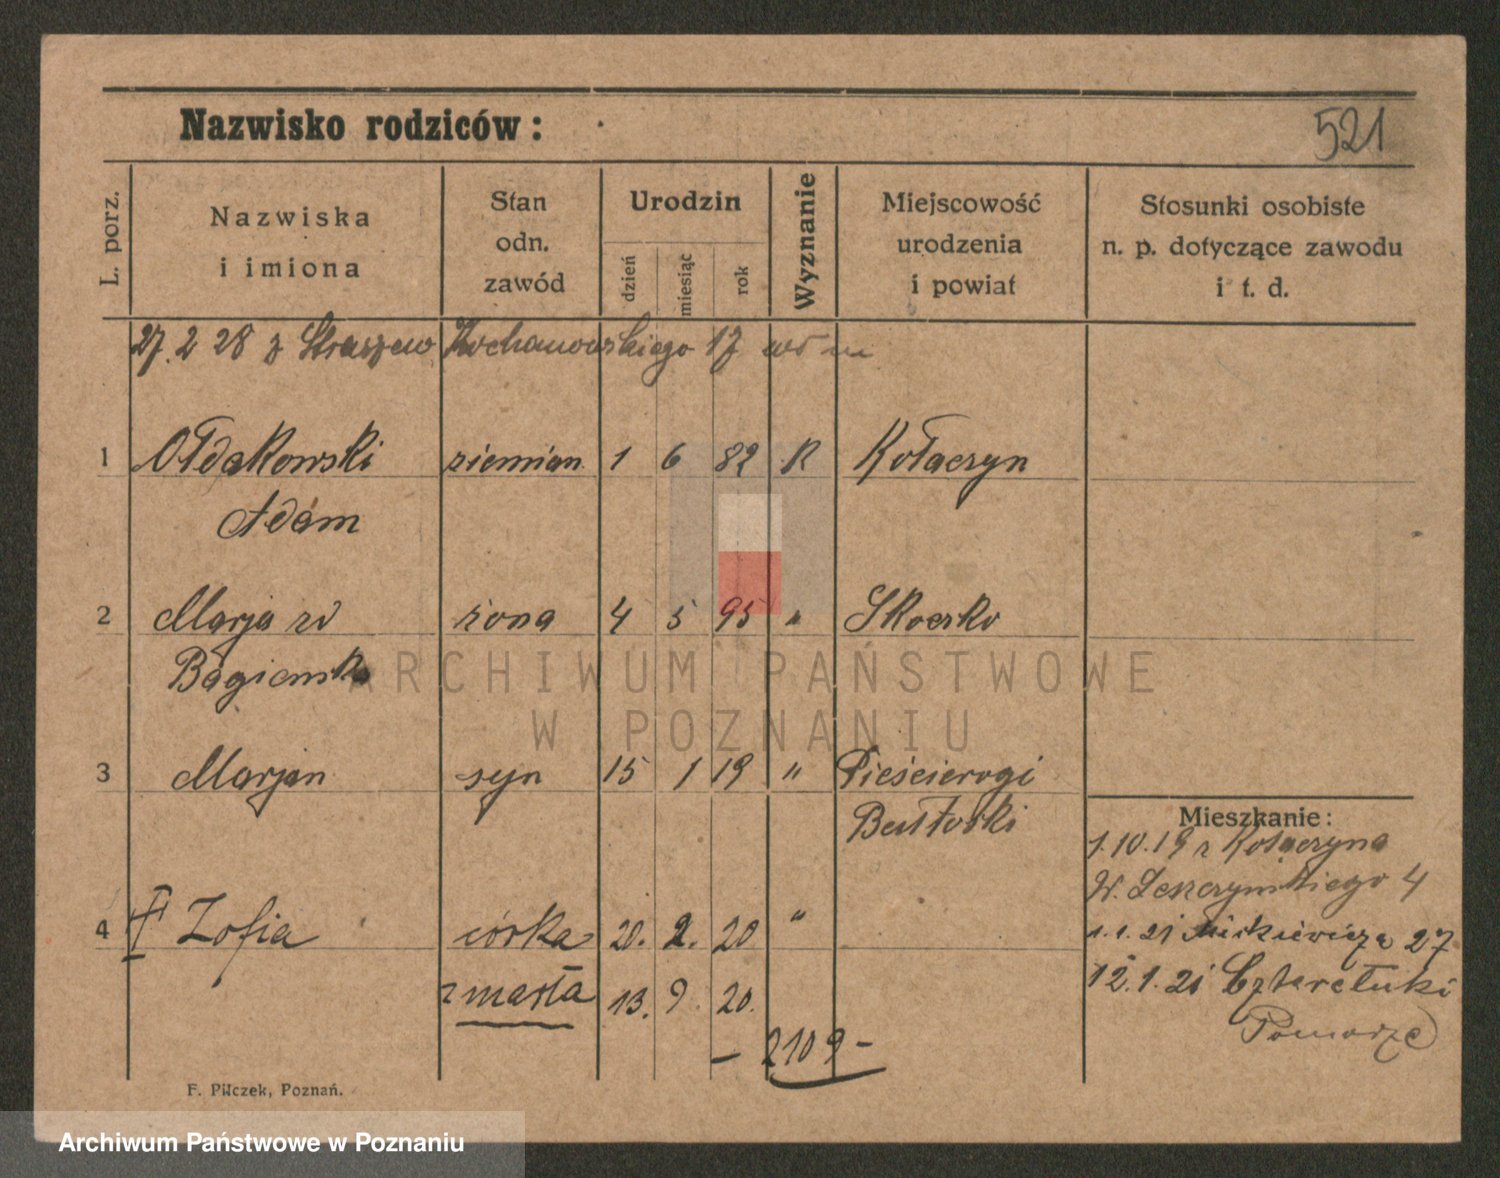 Nazwisko rodziców:
521
L. porz.
Nazwiska
i imiona
Stan
odn.
zawód
Urodzin
dzień
miesiąc
rok
Wyznanie
Miejscowość
urodzenia
i powiat
Stosunki osobiste
n. p. dotyczące zawodu
i t. d.
27. 2 28 z Straszew Kochanowskiego 17
1 Ołdakowski ziemian. 1 6 82 R Kołaczyn
Adam
2 Marja zd żona 4 5 95 " Skoczko
Bagieńsk
3 Marjan syn 15 1 19 " Pieścierogi
4 Zofia córka 20. 2. 20 "
zmarła 13. 9. 20.
- 2109 -
Mieszkanie:
1.10.19 z Kołaczyna
W. Leszczyńskiego 4
1.1.21 Mickiewicza 27
12.1.21 Czterełuki
Pomorze
F. Pilczek, Poznań.
ARCHIWUM PAŃSTWOWE
W POZNANIU
Archiwum Państwowe w Poznaniu